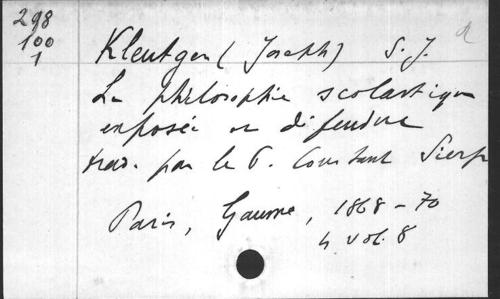 298
100
1
Kleutgen (Joseph) S. J.
La philosophie scolastique
exposée et défendue
trad. par le P. Constant Sierp
Paris, Gaume, 1868-70
4 vol. 8